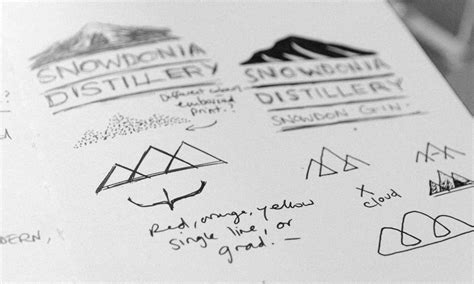 SNOWDONIA
DISTILLERY
SNOWDONIA
DISTILLERY
SNOWDON GIN.
Different colours
embossed
print?
?
Red, orange, yellow
single line, or
grad. —
X
cloud
DERN,